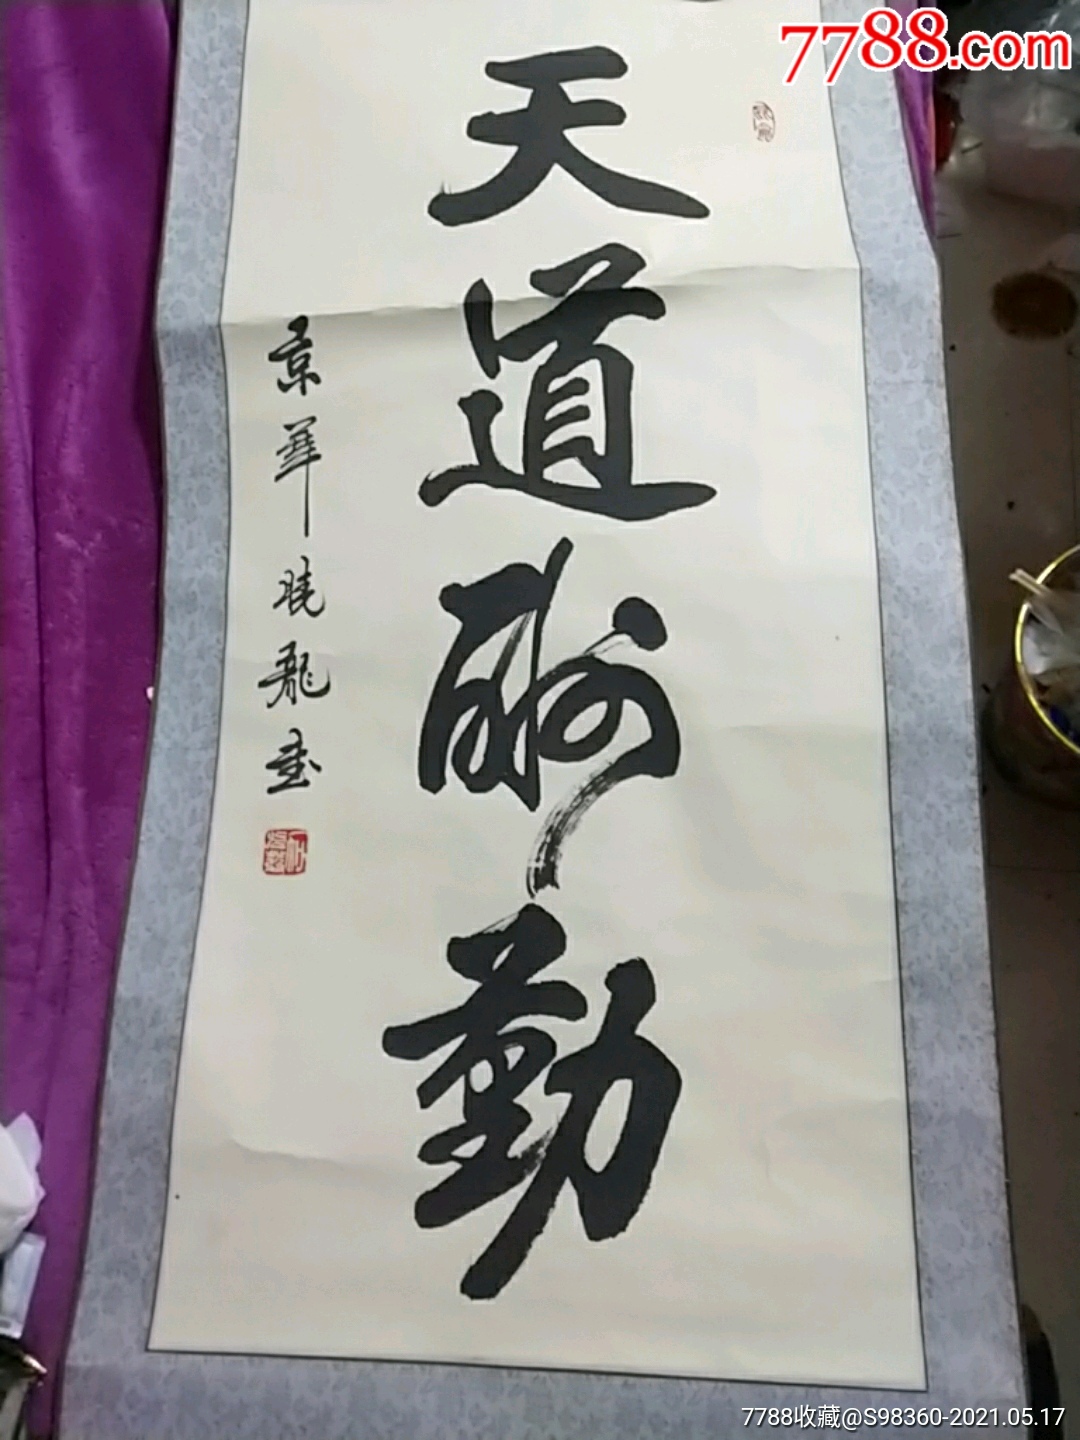 7788.com
天道酬勤
京華曉龍書
7788收藏@S98360-2021.05.17